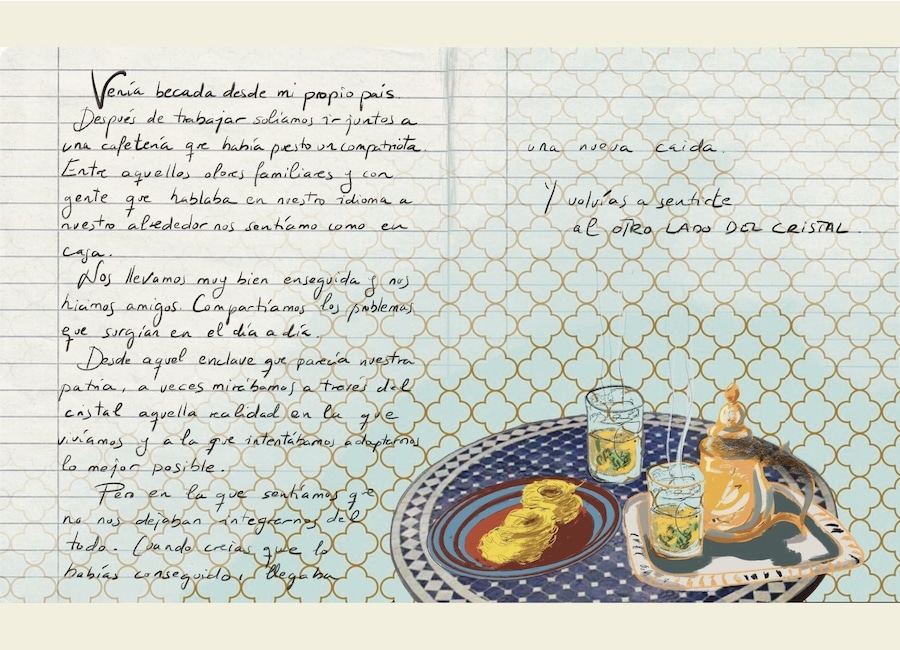 Venía becada desde mi propio país.
Después de trabajar solíamos ir juntos a
una cafetería que había puesto un compatriota.
Entre aquellos olores familiares y con
gente que hablaba en nuestro idioma a
nuestro alrededor nos sentíamo como en
casa.
Nos llevamos muy bien enseguida y nos
hicimos amigos. Compartíamos los problemas
que surgían en el día a día.
Desde aquel enclave que parecía nuestra
patria, a veces mirábamos a traves del
cristal aquella realidad en la que
vivíamos y a la que intentábamos adaptarnos
lo mejor posible.
Pero en la que sentíamos que
no nos dejaban integrarnos del
todo. Cuando creías que lo
habías conseguido, llegaba
una nueva caida.
Y volvías a sentirte
al OTRO LADO DEL CRISTAL.